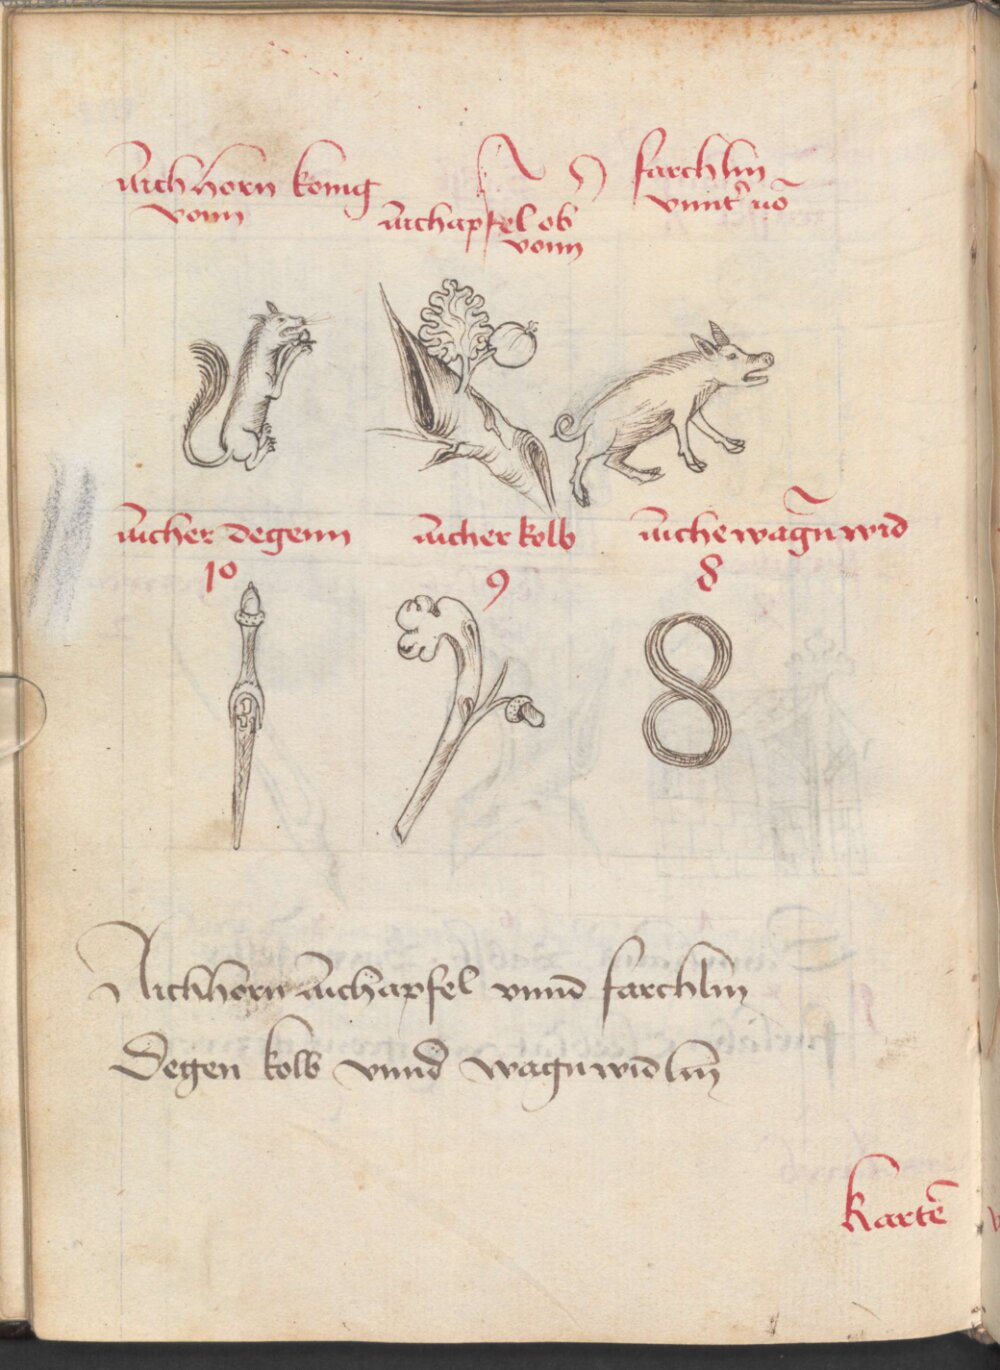 aichhorn konig
vonn
aichapfel ob
vonn
farchlin
vnnt͛ vō
aicher degenn
10
aicher kolb
9
aiche wagn̄wid
8
Aichhorn aichapfel vnnd farchlin
Degen kolb vnnd wagnwidlin
Kartē